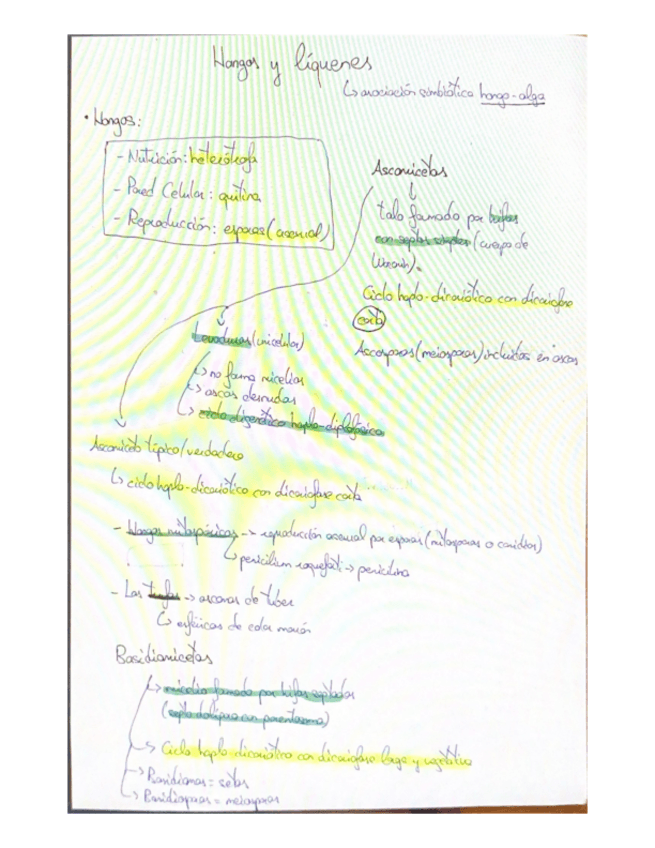 Hongos y líquenes
↳ asociación simbiótica hongo-alga
• Hongos:
- Nutrición: heterótrofa
- Pared Celular: quitina
- Reproducción: esporas (asexual)
Ascomicetos
↓
talo formado por hifas
con septos simples (cuerpo de
Woronin).
Ciclo haplo-dicariótico con dicariofase
corta
Ascosporas (meiosporas) incluidas en ascas
Levaduras (unicelular)
↳ no forma micelios
↳ ascas desnudas
↳ ciclo digenético haplo-diplofásico
Ascomiceto típico/verdadero
↳ ciclo haplo-dicariótico con dicariofase corta
- Hongos mitospóricos → reproducción asexual por esporas (mitosporas o conidios)
↳ penicilium roqueforti → penicilina
- Las trufas → ascomas de tuber
↳ esféricas de color marrón
Basidiomicetos
↳ micelio formado por hifas septadas
(septo dolíporo con parentosoma)
↳ Ciclo haplo dicariótico con dicariofase larga y vegetativa
→ Basidiomas = setas
↳ Basidiosporas = meiosporas